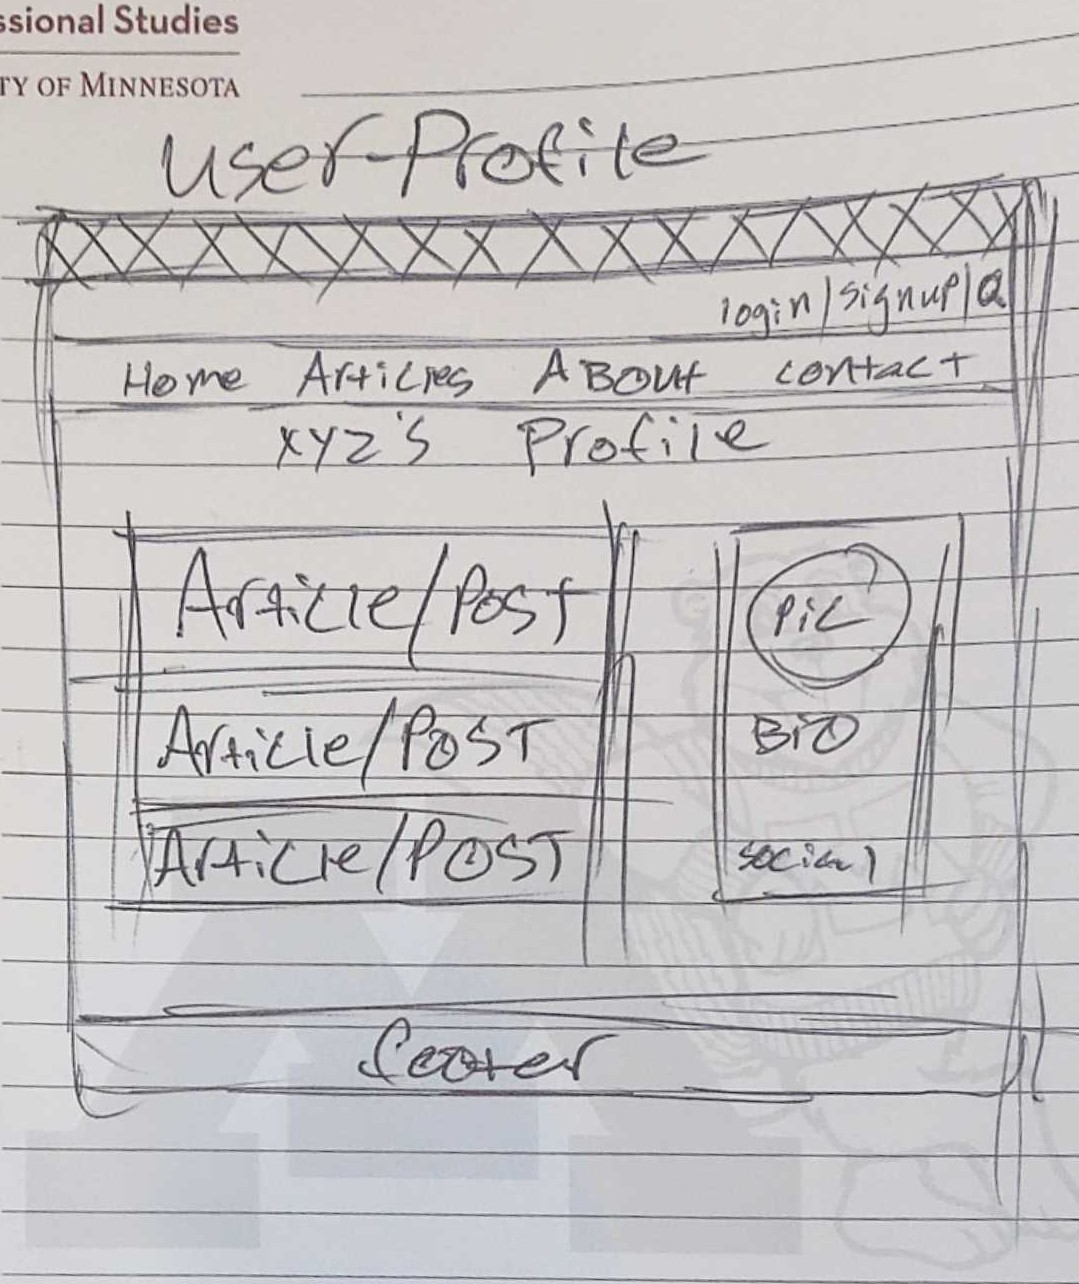 ssional Studies
TY OF MINNESOTA
User-Profile
login/signup/Q
Home Articles ABOUt contact
XYZ's Profile
Article/Post
Pic
Article/POST
BiO
Article/POST
social
footer